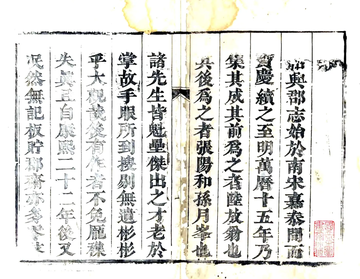 紹興郡志始於南宋嘉泰間而
寶慶續之至明萬曆十五年乃
集其成其前為之者陸放翁也
其後為之者張陽和孫月峯也
諸先生皆魁壘傑出之才老於
掌故手眼所到搜剔無遺彬彬
乎大觀哉後有作者不免龐襍
失眞且自康熙二十二年後又
泯然無記板貯郡齋亦多